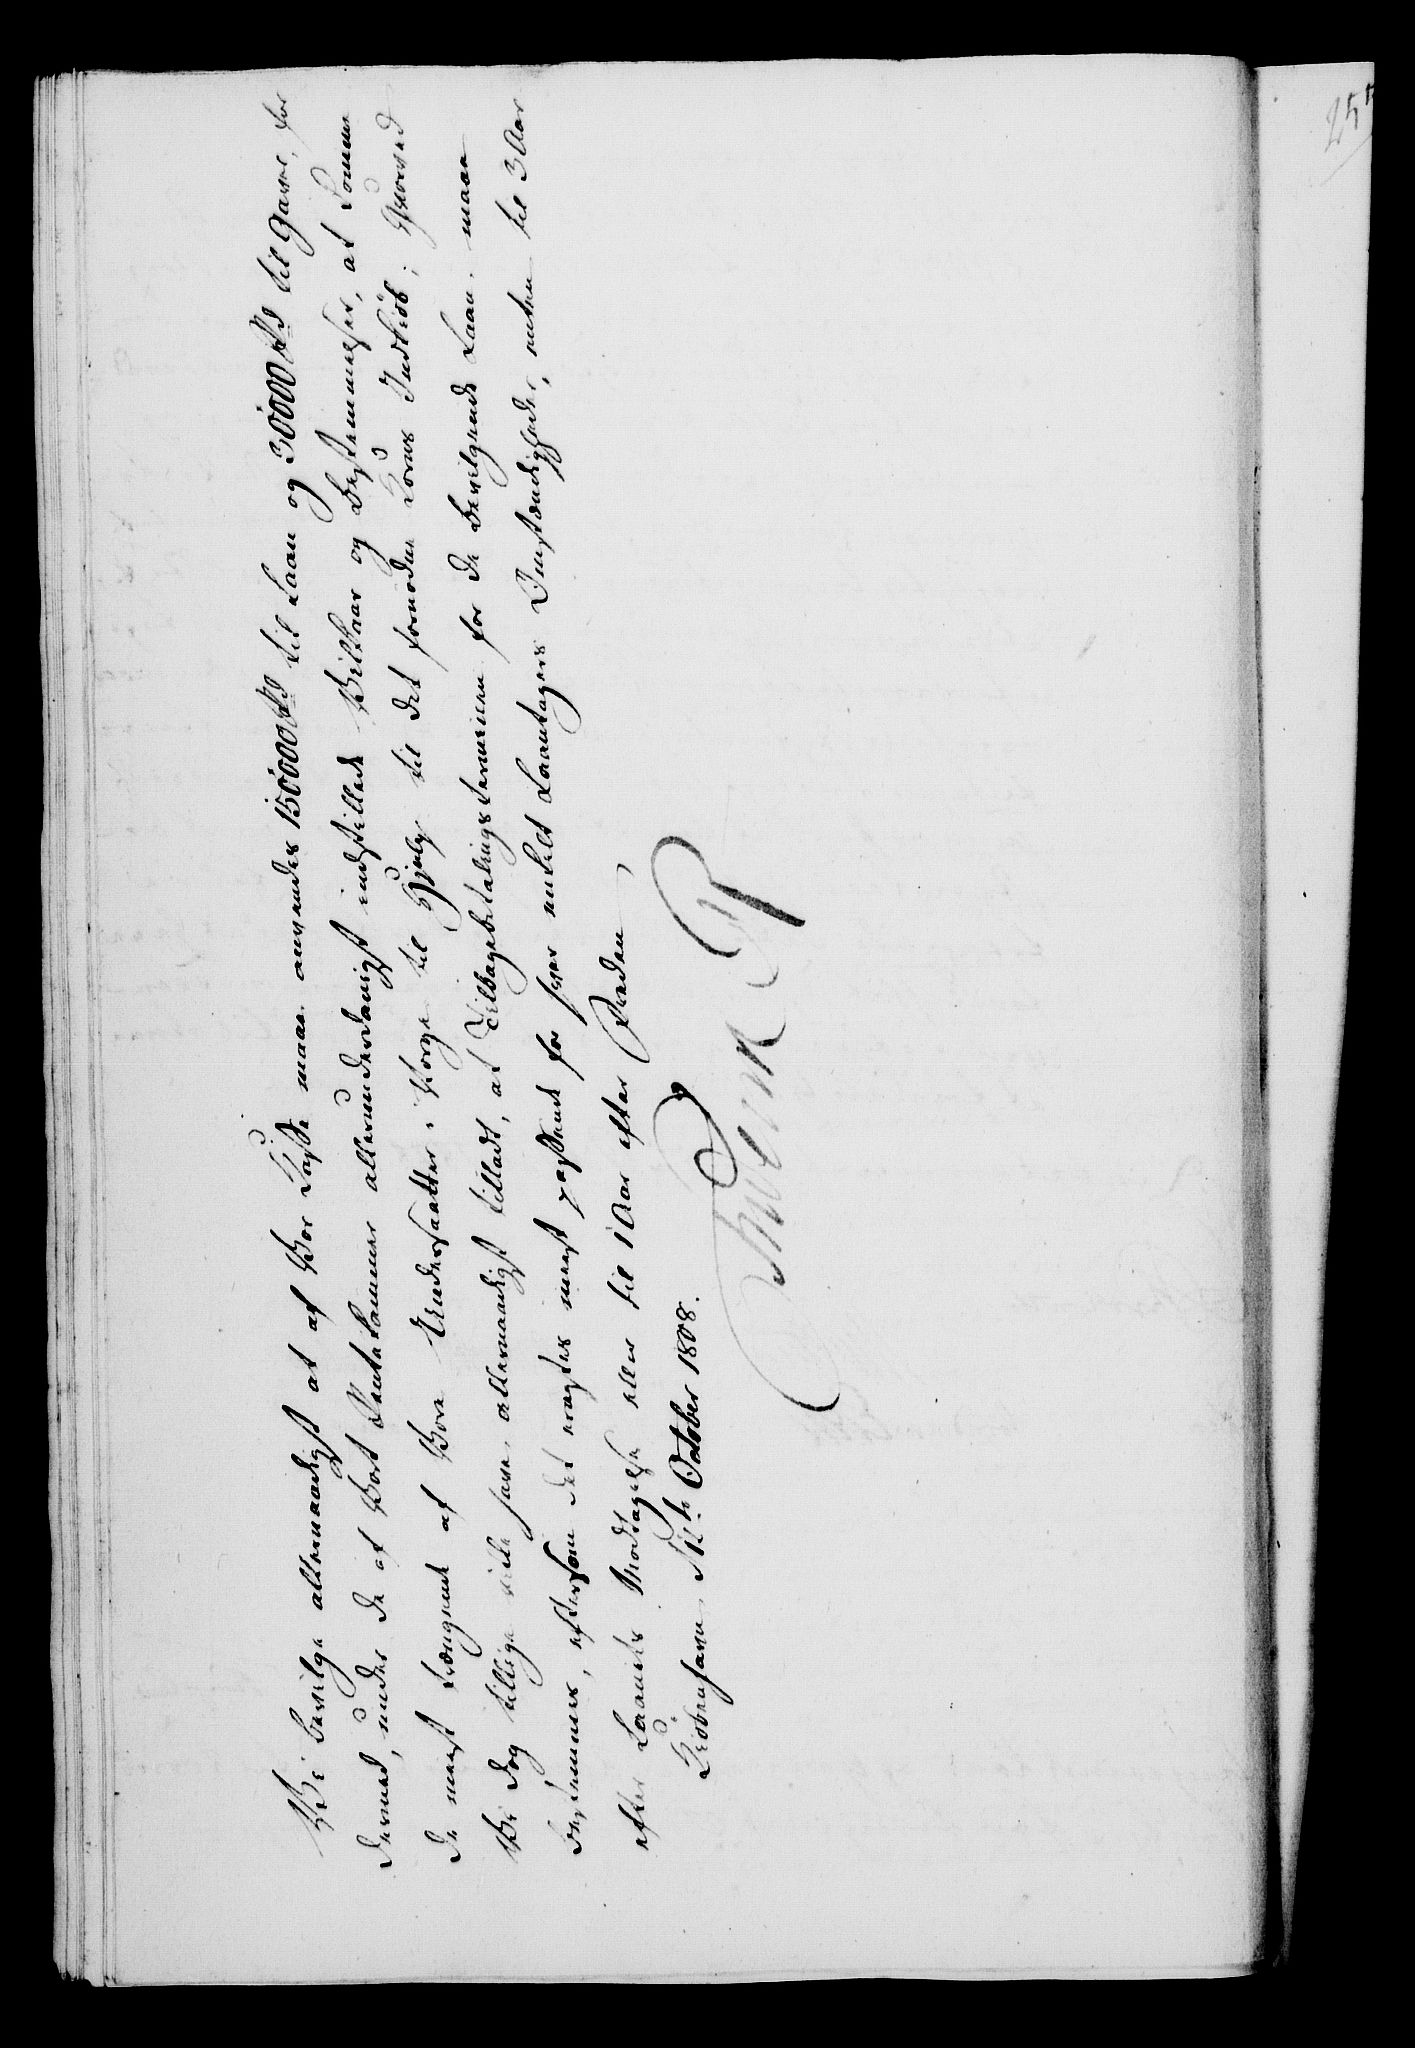 Vi bevilge allernaadigst at af Vor Casse maae anvendes 150'000 Rd til Laan og 30'000 Rd til Gave, for
dermed, under de af Vort Rentekammer allerunderdanigst indstillede Vilkaar og Bestemmelser, at komme
de meest trængende af Vore Undersaatter i Norge til Hjelp til det fornødne Korns Indkiøb; hvorved
Vi dog tillige ville have allernaadigst tilladt, at Tilbagebetalings terminen for de bevilgende Laan, maae
bestemmes, eftersom det eragtes meest passende for hver enkelt Laantagers Omstændigheder, enten til 3 Aar
efter Laanets Modtagelse eller til 1 Aar efter Freden
Kiøbenhavn October 1808.
Frederik R
25